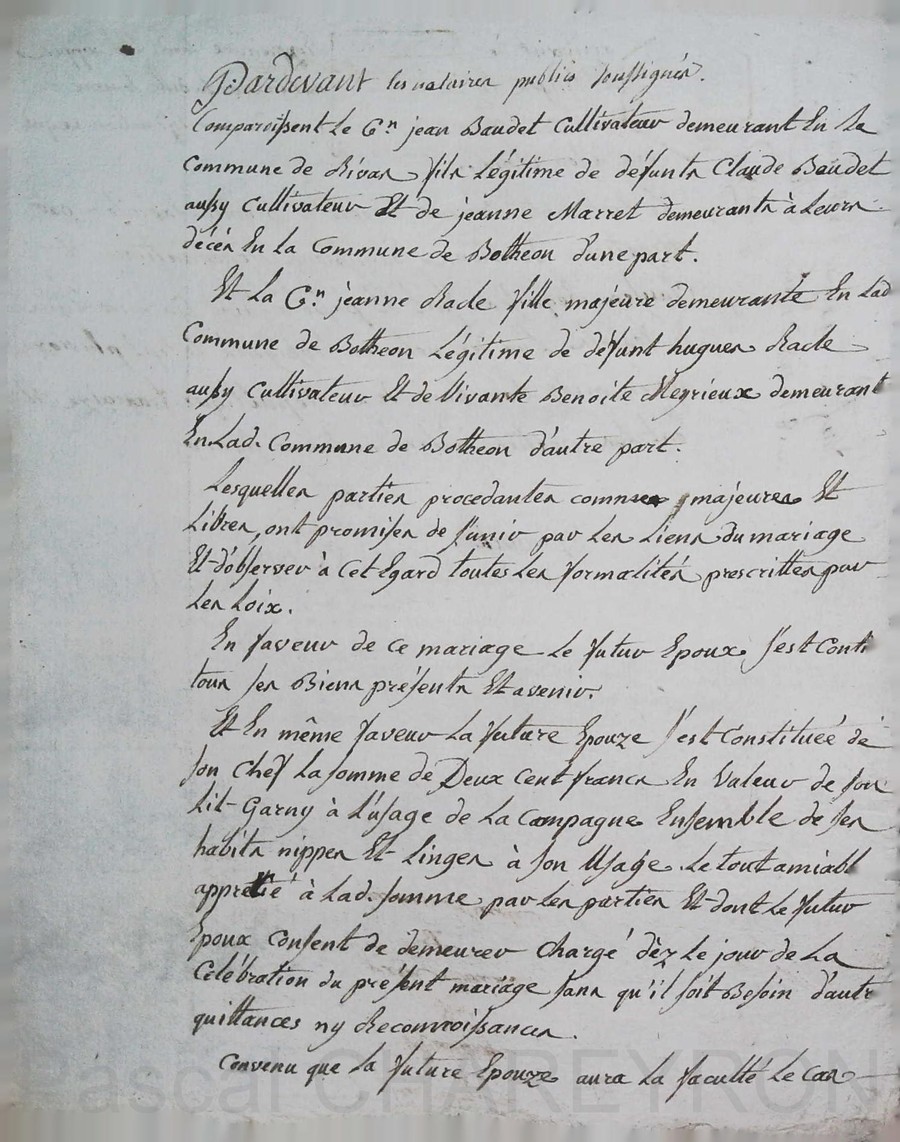 Pardevant les notaires publics soussignés.
Comparoissent Le C.en jean Baudet Cultivateur demeurant En La
Commune de Rivas fils Légitime de défunts Claude Baudet
aussy Cultivateur Et de jeanne Marret demeurants à Leurs
décés En La Commune de Botheon d'une part.
Et La C.en jeanne Rade fille majeure demeurante En Lad
Commune de Botheon Légitime de défunt hugues Rade
aussy Cultivateur Et de Vivante Benoite Megrieux demeurant
En Lad. Commune de Botheon d'autre part.
Lesquelles parties procedantes comme majeures Et
Libres, ont promises de s'unir par Les Liens du mariage
Et d'observer à Cet Egard toutes Les formalités prescrittes par
Les Loix.
En faveur de ce mariage Le futur Epoux s'est Conti
tous ses Biens présents Et avenir.
Et En même faveur La future Epouze s'est Constituée de
son Chef La somme de Deux Cent francs En Valeur de son
Lit-Garny à L'usage de La Campagne Ensemble de ses
habits nippes Et Linges à son Usage Le tout amiabl
appretié à Lad. somme par Les parties Et dont Le futur
Epoux Consent de demeurer Chargé dèz Le jour de La
Célébration du présent mariage sans qu'il soit Besoin d'autr
quittances ny Reconnoissances.
Convenu que La future Epouze aura La faculté Le cas
Pascal CHAREYRON